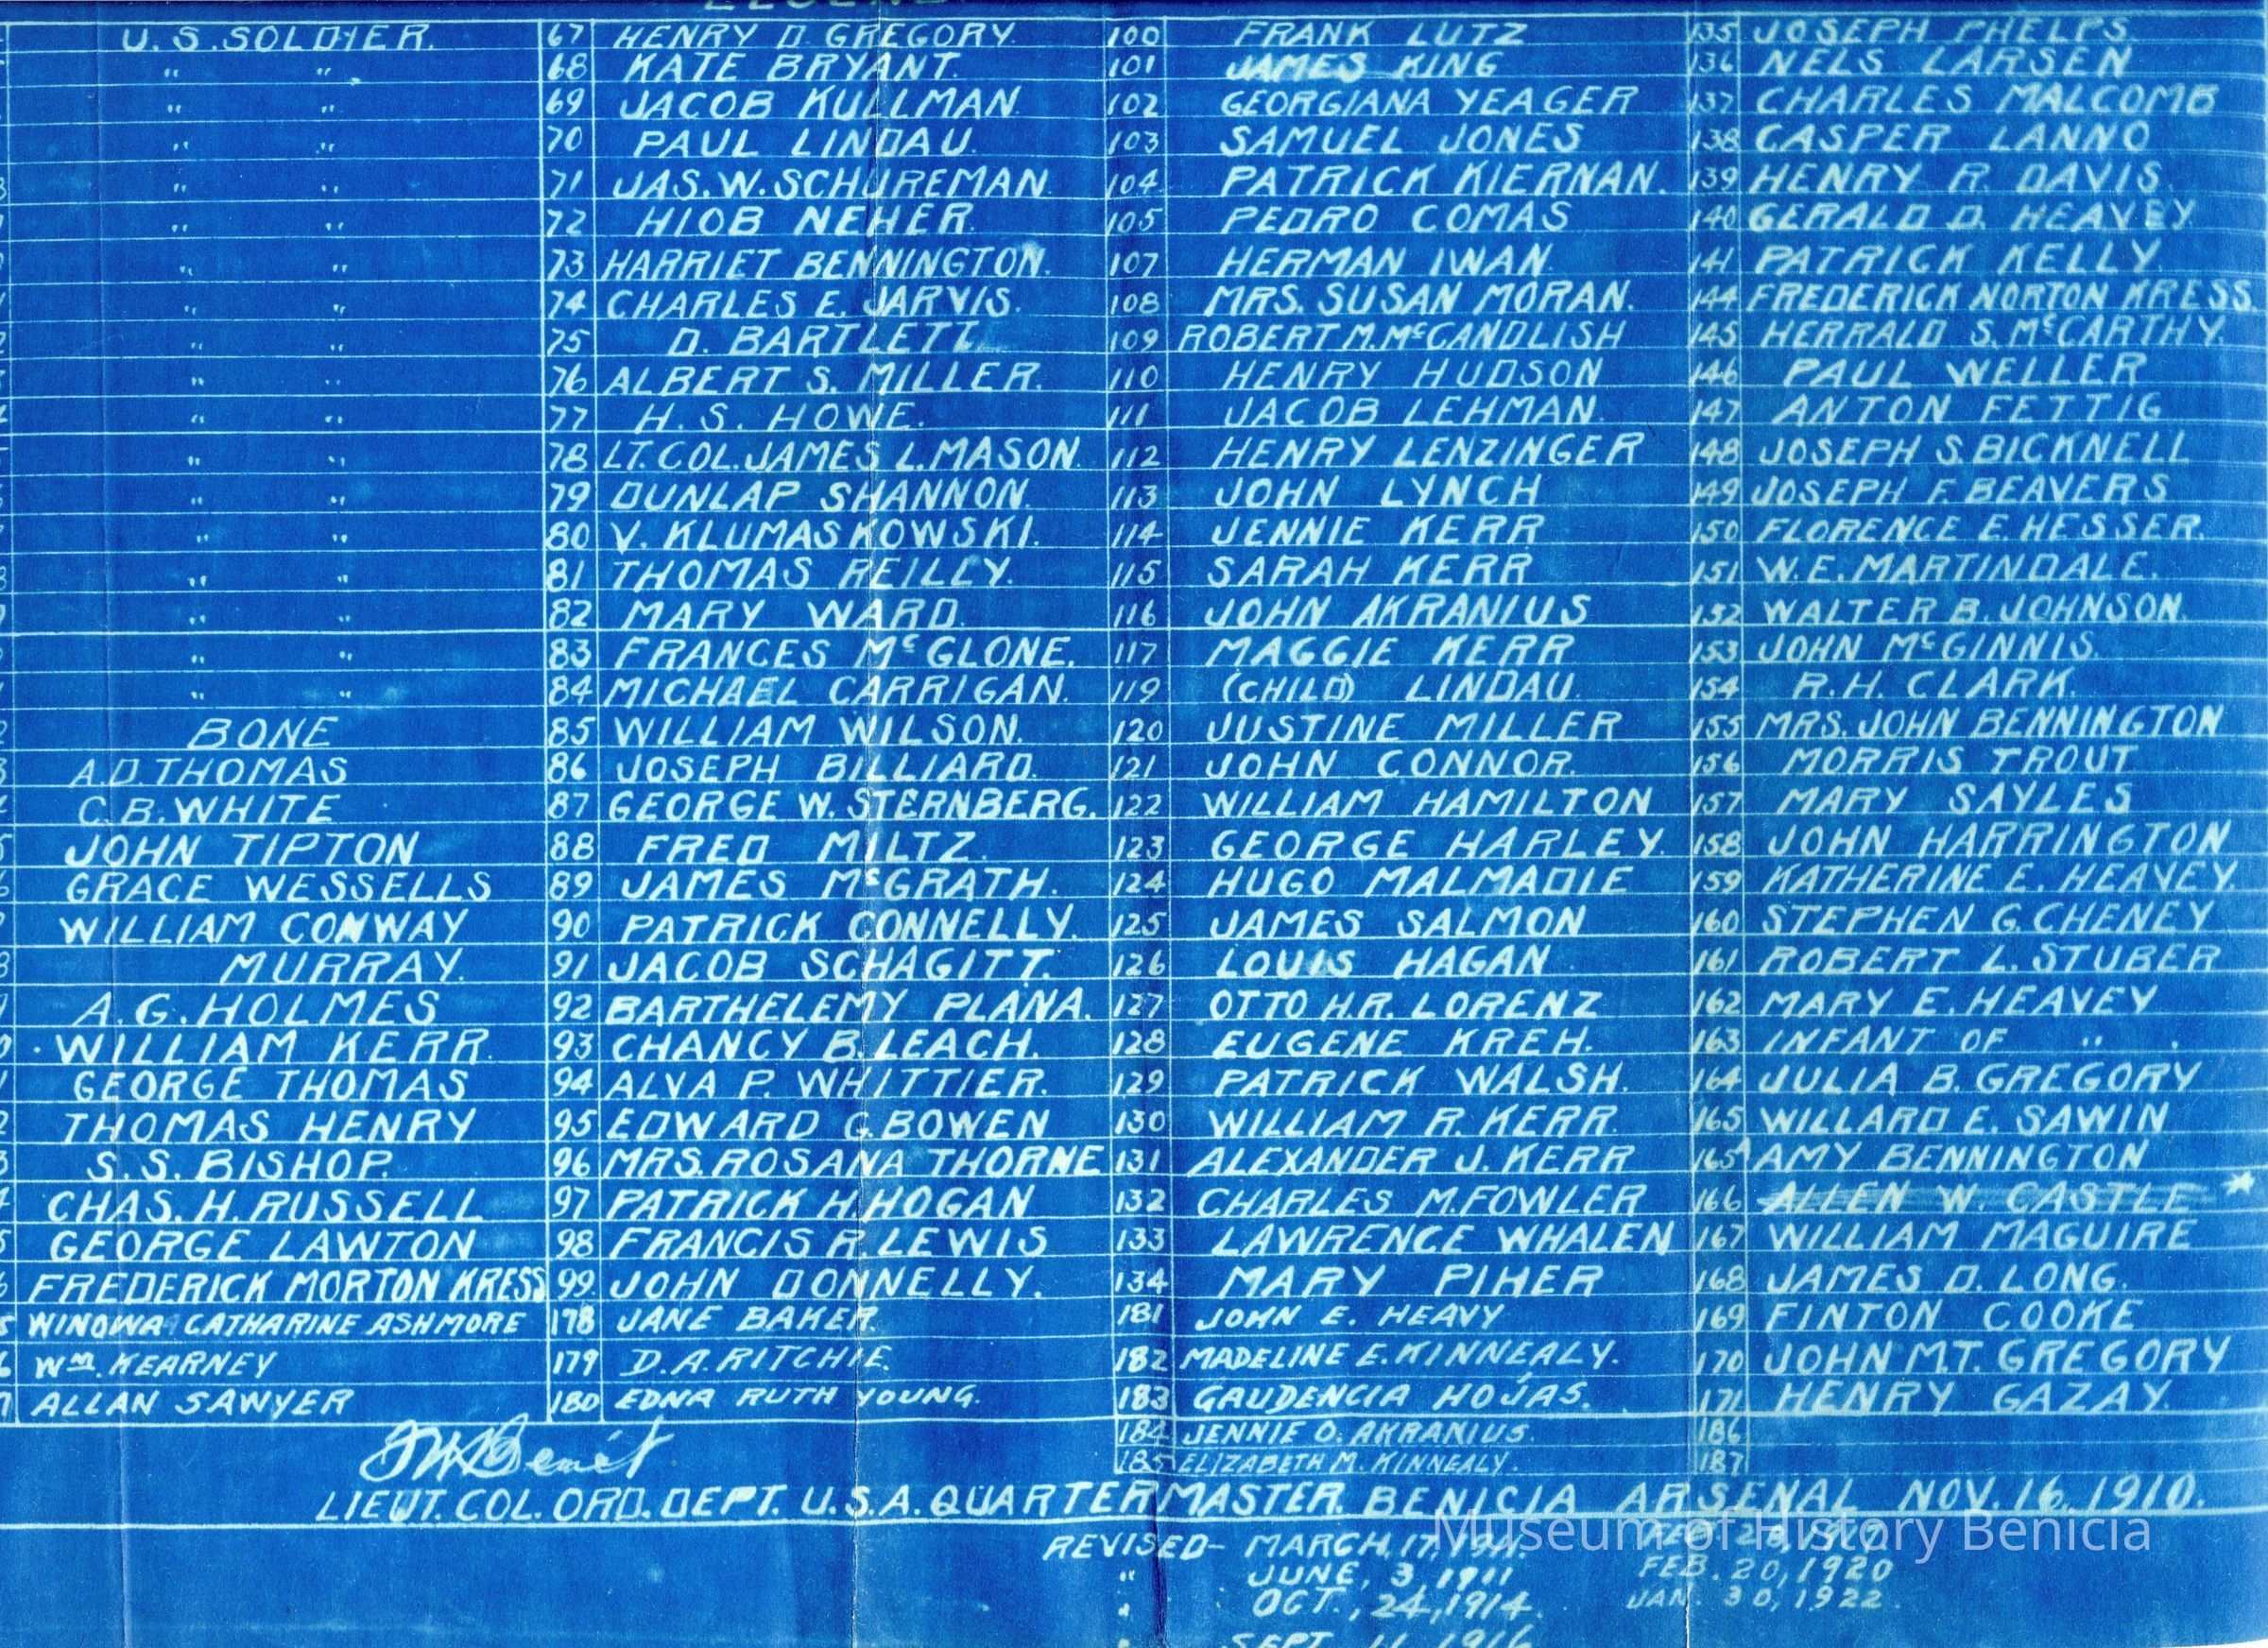 LEGEND
U.S. SOLDIER. 67 HENRY D. GREGORY. 100 FRANK LUTZ 135 JOSEPH PHELPS.
" " 68 KATE BRYANT. 101 JAMES KING 136 NELS LARSEN
" " 69 JACOB KULLMAN. 102 GEORGIANA YEAGER 137 CHARLES MALCOMB
" " 70 PAUL LINDAU. 103 SAMUEL JONES 138 CASPER LANNO
" " 71 JAS. W. SCHUREMAN. 104 PATRICK KIERNAN. 139 HENRY R. DAVIS.
" " 72 HIOB NEHER. 105 PEDRO COMAS 140 GERALD D. HEAVEY
" " 73 HARRIET BENNINGTON. 107 HERMAN IWAN. 141 PATRICK KELLY.
" " 74 CHARLES E. JARVIS. 108 MRS. SUSAN MORAN. 144 FREDERICK NORTON KRESS.
" " 75 D. BARTLETT. 109 ROBERT M. McCANDLISH 145 HERRALD S. McCARTHY.
" " 76 ALBERT S. MILLER. 110 HENRY HUDSON 146 PAUL WELLER
" " 77 H. S. HOWE. 111 JACOB LEHMAN. 147 ANTON FETTIG
" " 78 LT. COL. JAMES L. MASON. 112 HENRY LENZINGER 148 JOSEPH S. BICKNELL
" " 79 DUNLAP SHANNON. 113 JOHN LYNCH 149 JOSEPH F. BEAVERS
" " 80 V. KLUMASKOWSKI. 114 JENNIE KERR 150 FLORENCE E. HESSER.
" " 81 THOMAS REILLY. 115 SARAH KERR 151 W. E. MARTINDALE.
" " 82 MARY WARD. 116 JOHN AKRANIUS 152 WALTER B. JOHNSON.
" " 83 FRANCES McGLONE. 117 MAGGIE KERR 153 JOHN McGINNIS.
" " 84 MICHAEL CARRIGAN. 119 (CHILD) LINDAU. 154 R. H. CLARK.
BONE 85 WILLIAM WILSON. 120 JUSTINE MILLER 155 MRS. JOHN BENNINGTON
A. D. THOMAS 86 JOSEPH BILLIARD. 121 JOHN CONNOR. 156 MORRIS TROUT
C. B. WHITE 87 GEORGE W. STERNBERG. 122 WILLIAM HAMILTON 157 MARY SAYLES
JOHN TIPTON 88 FRED MILTZ. 123 GEORGE HARLEY. 158 JOHN HARRINGTON
GRACE WESSELLS 89 JAMES McGRATH. 124 HUGO MALMADIE 159 KATHERINE E. HEAVEY.
WILLIAM CONWAY 90 PATRICK CONNELLY. 125 JAMES SALMON 160 STEPHEN G. CHENEY
MURRAY. 91 JACOB SCHAGITT. 126 LOUIS HAGAN 161 ROBERT L. STUBER
A. G. HOLMES 92 BARTHELEMY PLANA. 127 OTTO H.R. LORENZ 162 MARY E. HEAVEY
WILLIAM KERR. 93 CHANCY B. LEACH. 128 EUGENE KREH. 163 INFANT OF " .
GEORGE THOMAS 94 ALVA P. WHITTIER. 129 PATRICK WALSH. 164 JULIA B. GREGORY
THOMAS HENRY 95 EDWARD G. BOWEN 130 WILLIAM R. KERR. 165 WILLARD E. SAWIN
S. S. BISHOP. 96 MRS. ROSANA THORNE 131 ALEXANDER J. KERR 165A AMY BENNINGTON
CHAS. H. RUSSELL 97 PATRICK H. HOGAN 132 CHARLES M. FOWLER 166 ALLEN W. CASTLE *
GEORGE LAWTON 98 FRANCIS R. LEWIS 133 LAWRENCE WHALEN 167 WILLIAM MAGUIRE
FREDERICK MORTON KRESS 99 JOHN DONNELLY. 134 MARY PIHER 168 JAMES D. LONG.
WINOWA CATHARINE ASHMORE 178 JANE BAKER. 181 JOHN E. HEAVY 169 FINTON COOKE
Wm. KEARNEY 179 D. A. RITCHIE. 182 MADELINE E. KINNEALY. 170 JOHN M.T. GREGORY
ALLAN SAWYER 180 EDNA RUTH YOUNG. 183 GAUDENCIA HOJAS. 171 HENRY GAZAY.
184 JENNIE O. AKRANIUS. 186
185 ELIZABETH M. KINNEALY. 187
LIEUT. COL. ORD. DEPT. U.S.A. QUARTERMASTER. BENICIA ARSENAL NOV. 16, 1910.
Museum of History Benicia
REVISED- MARCH, 17, 1911.
" JUNE, 3, 1911 FEB. 20, 1920
" OCT., 24, 1914. JAN. 30, 1922.
" SEPT. 11, 1916